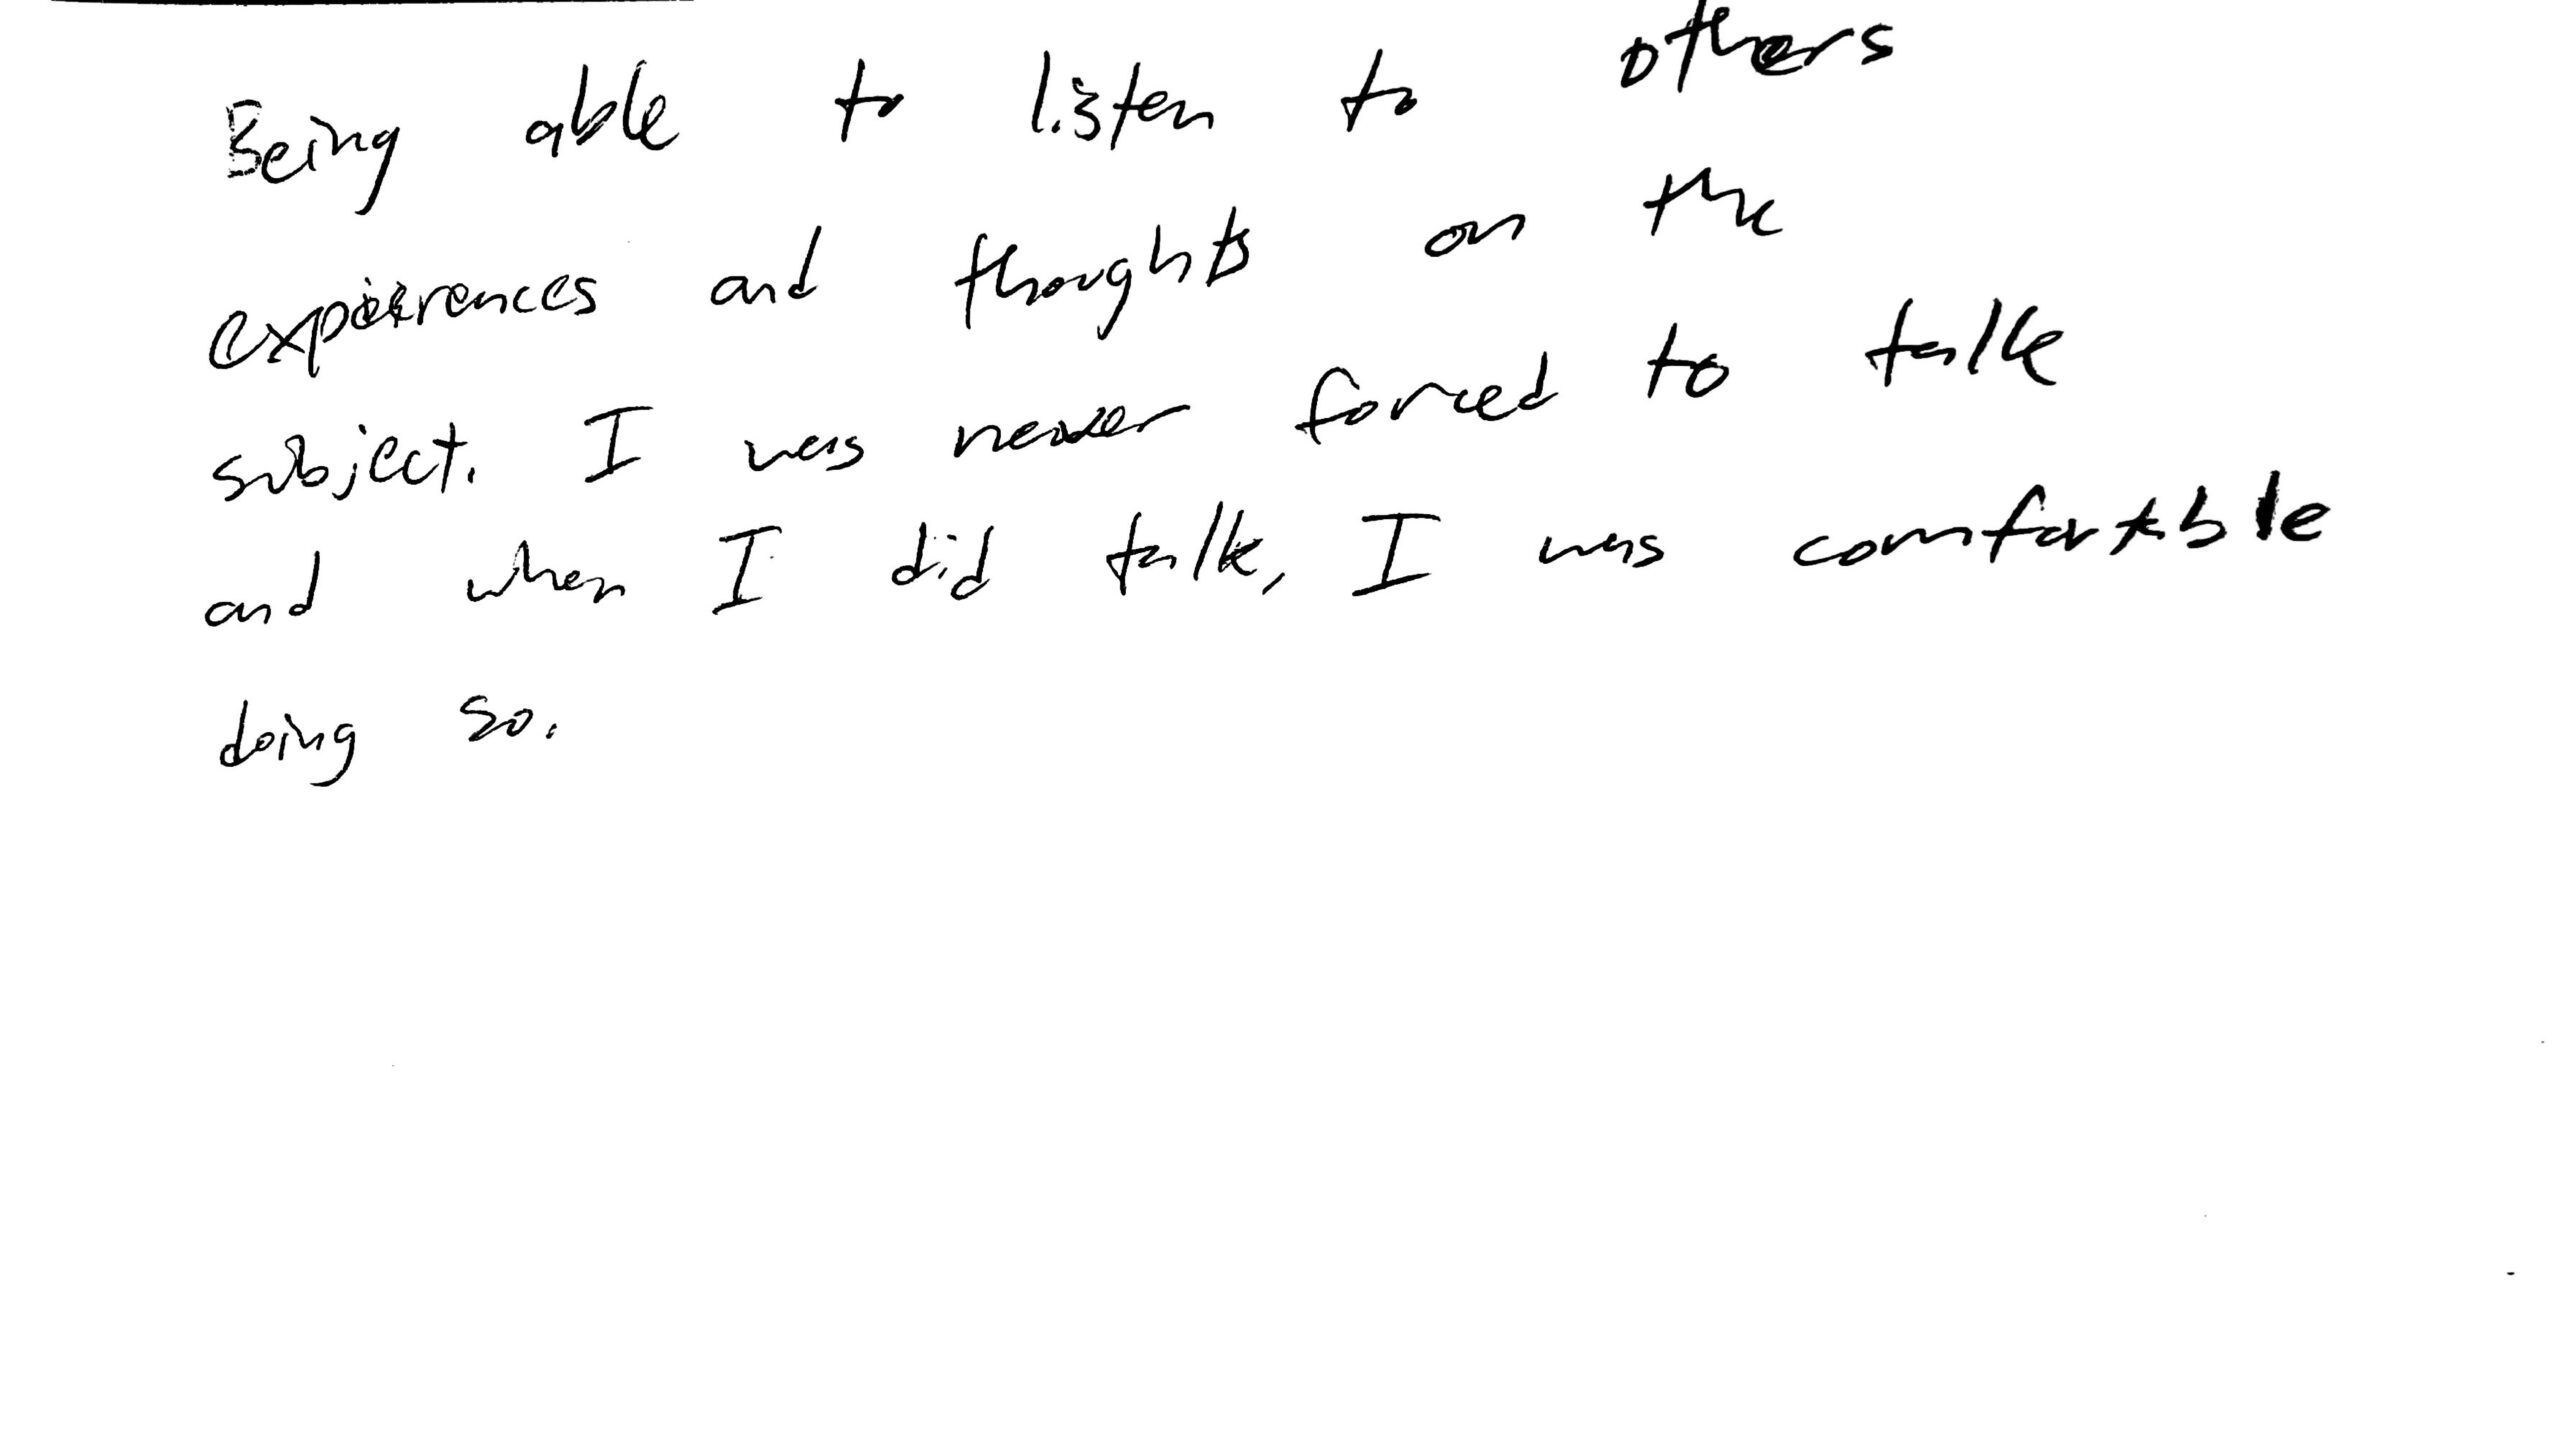 Being able to listen to others
expierences and thoughts on the
subject. I was never forced to talk
and when I did talk, I was comfortable
doing so.